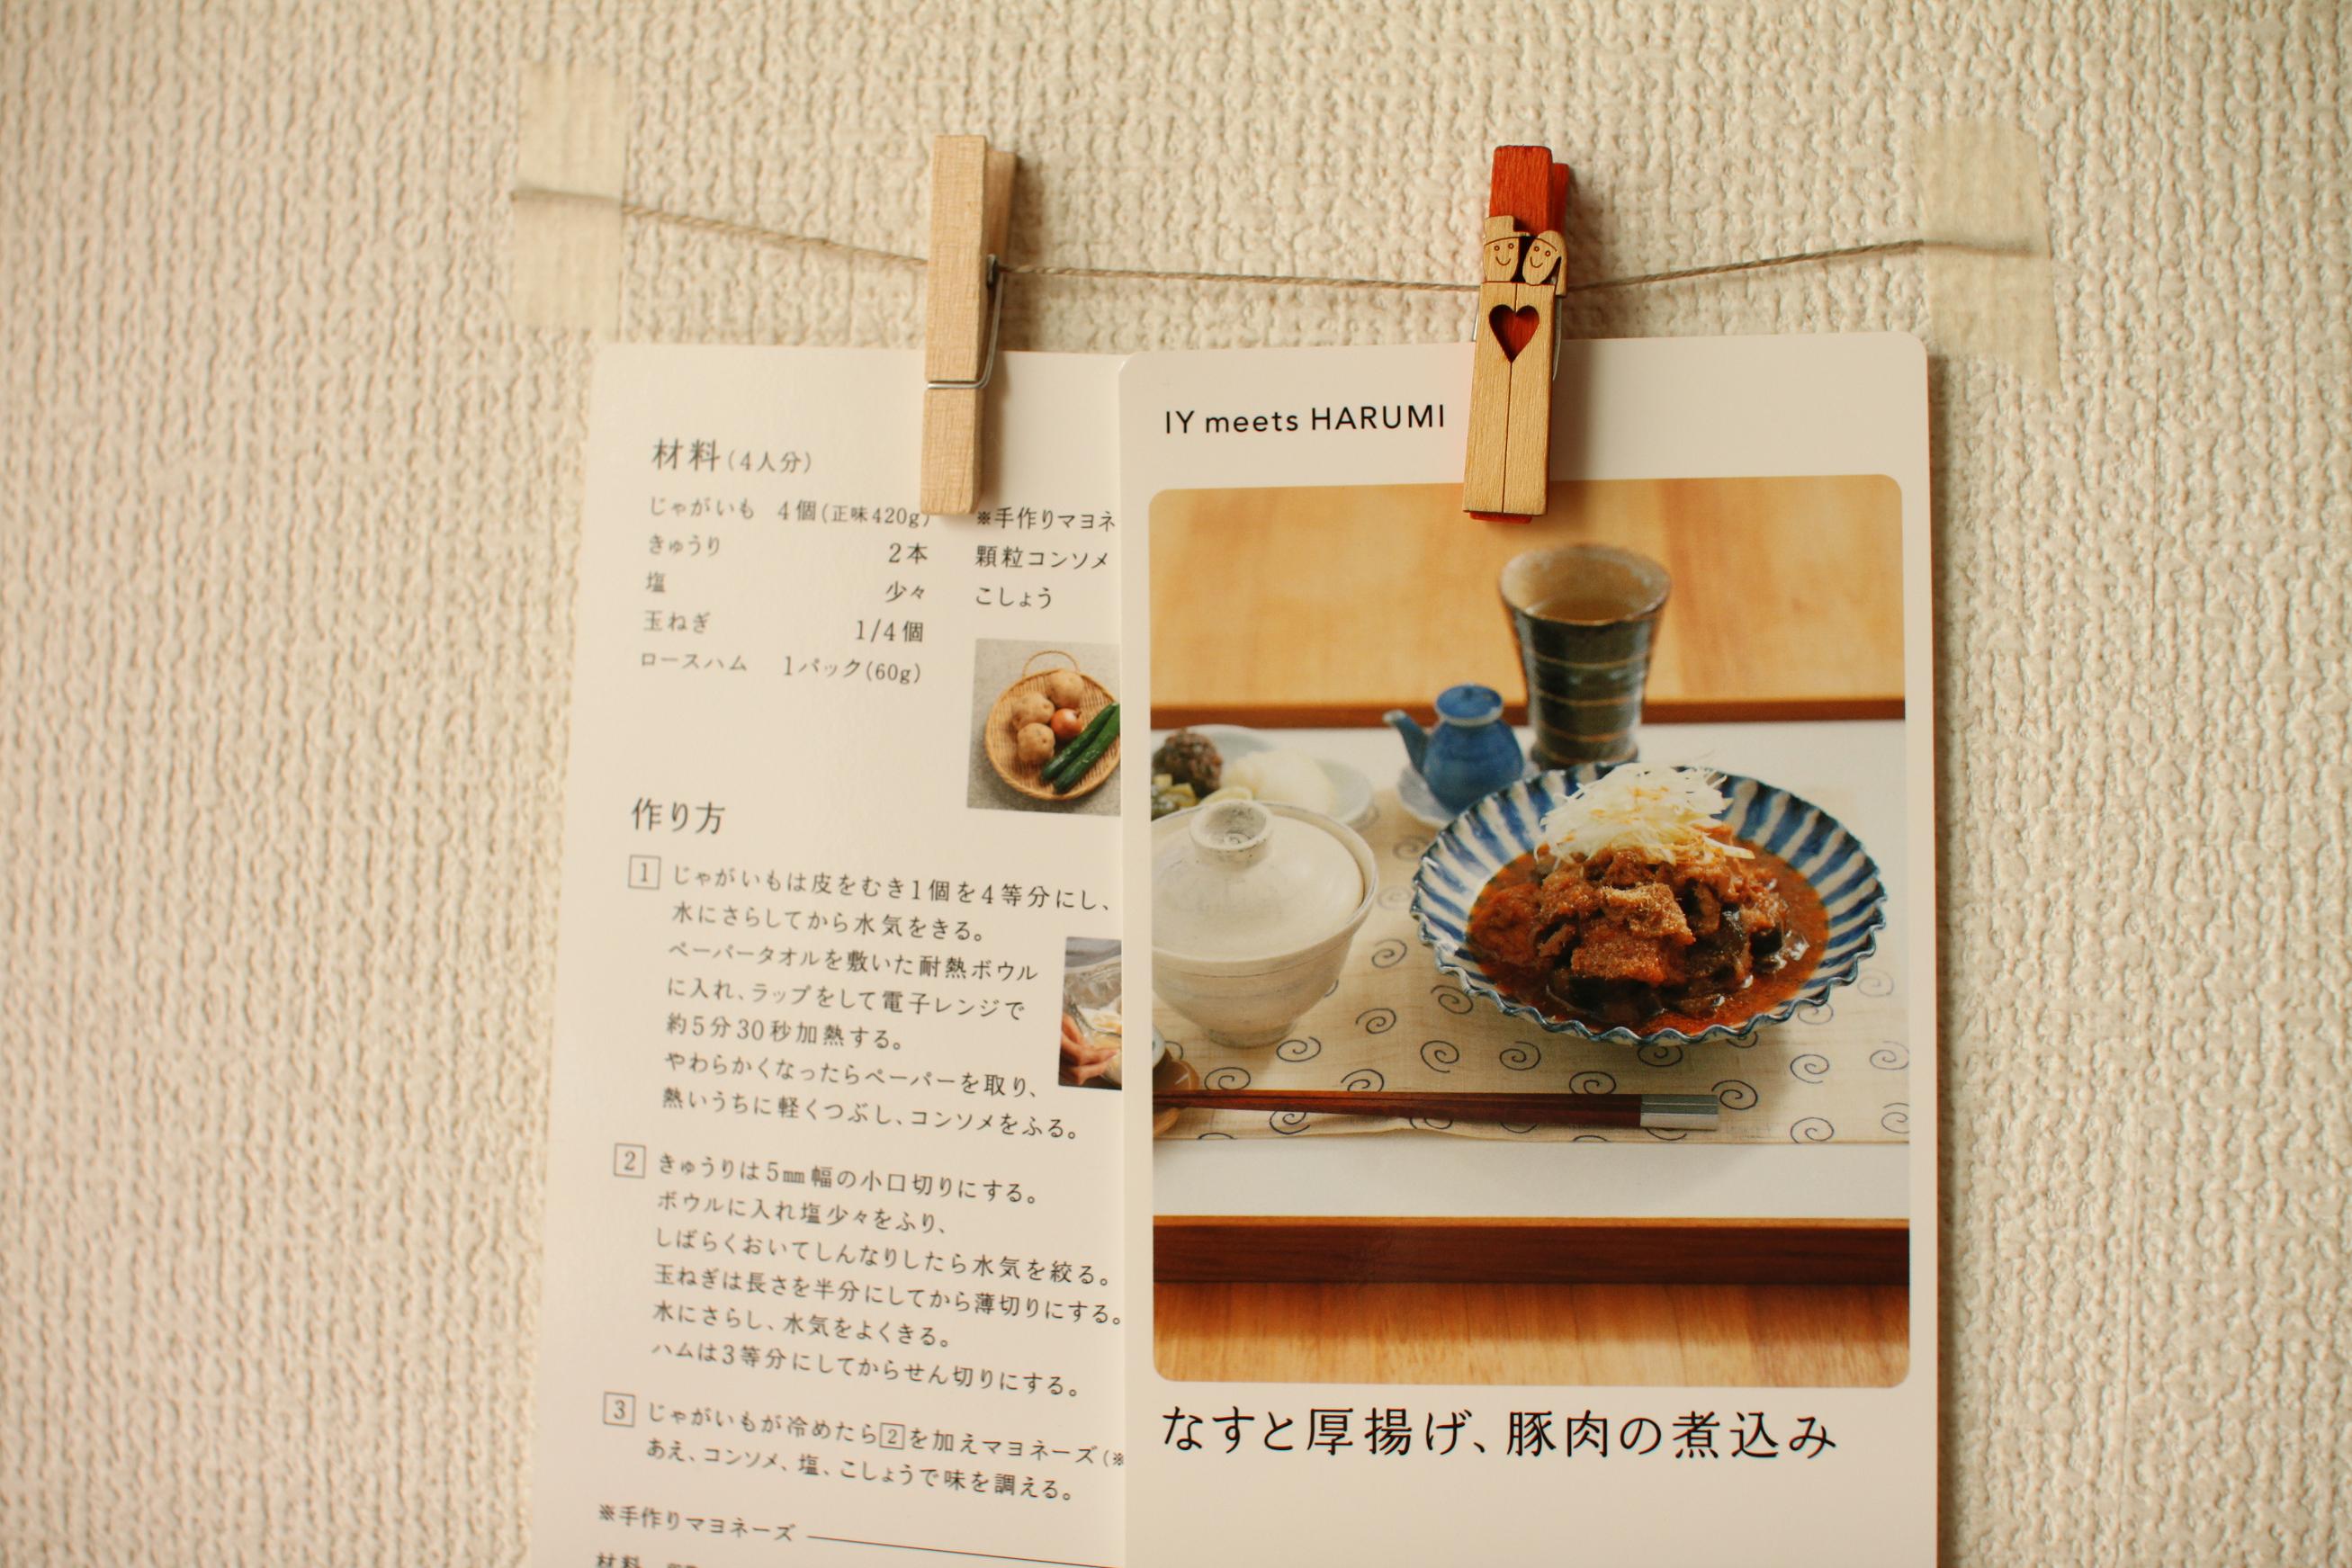 材料(4人分)
じゃがいも 4個(正味420g)
きゅうり 2本
塩 少々
玉ねぎ 1/4個
ロースハム 1パック(60g)
※手作りマヨネ
顆粒コンソメ
こしょう
作り方
1 じゃがいもは皮をむき1個を4等分にし、
水にさらしてから水気をきる。
ペーパータオルを敷いた耐熱ボウル
に入れ、ラップをして電子レンジで
約5分30秒加熱する。
やわらかくなったらペーパーを取り、
熱いうちに軽くつぶし、コンソメをふる。
2 きゅうりは5㎜幅の小口切りにする。
ボウルに入れ塩少々をふり、
しばらくおいてしんなりしたら水気を絞る。
玉ねぎは長さを半分にしてから薄切りにする。
水にさらし、水気をよくきる。
ハムは3等分にしてからせん切りにする。
3 じゃがいもが冷めたら2を加えマヨネーズ(※
あえ、コンソメ、塩、こしょうで味を調える。
※手作りマヨネーズ
材料
IY meets HARUMI
なすと厚揚げ、豚肉の煮込み